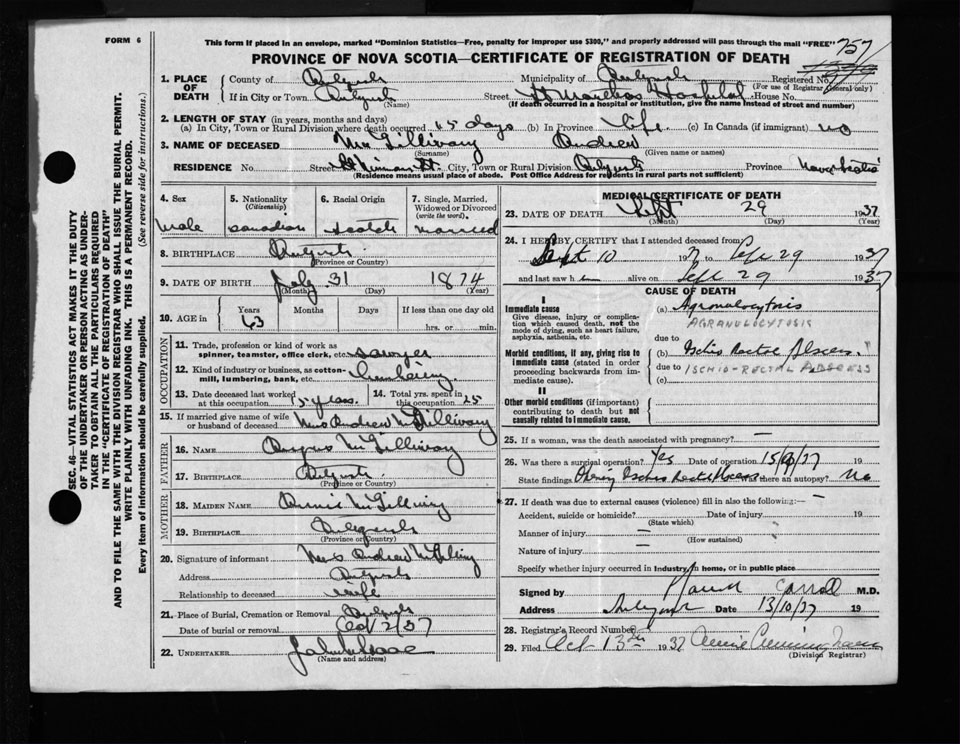 FORM 6
This form if placed in an envelope, marked "Dominion Statistics—Free, penalty for improper use $300," and properly addressed will pass through the mail "FREE"
757
PROVINCE OF NOVA SCOTIA—CERTIFICATE OF REGISTRATION OF DEATH
SEC. 46—VITAL STATISTICS ACT MAKES IT THE DUTY
OF THE UNDERTAKER OR PERSON ACTING AS UNDER-
TAKER TO OBTAIN ALL THE PARTICULARS REQUIRED
IN THE "CERTIFICATE OF REGISTRATION OF DEATH"
AND TO FILE THE SAME WITH THE DIVISION REGISTRAR WHO SHALL ISSUE THE BURIAL PERMIT.
WRITE PLAINLY WITH UNFADING INK. THIS IS A PERMANENT RECORD.
Every item of information should be carefully supplied. (See reverse side for instructions.)
1. PLACE OF DEATH
County of Municipality of Registered No.
(For use of Registrar General only)
If in City or Town Street St Marthas Hospital House No.
(Name) (If death occurred in a hospital or institution, give the name instead of street and number)
2. LENGTH OF STAY (in years, months and days)
(a) In City, Town or Rural Division where death occurred 15 days (b) In Province life (c) In Canada (if immigrant) no
3. NAME OF DECEASED McGillivary Andrew
(Surname) (Given name or names)
RESIDENCE No. Street St Ninian St. City, Town or Rural Division Province Nova Scotia
(Residence means usual place of abode. Post Office Address for residents in rural parts not sufficient)
4. Sex 5. Nationality (Citizenship) 6. Racial Origin 7. Single, Married, Widowed or Divorced (write the word).
Male Canadian Scotch Married
8. BIRTHPLACE
(Province or Country)
9. DATE OF BIRTH July 31 1874
(Month) (Day) (Year)
10. AGE in Years Months Days If less than one day old
63 hrs. or min.
OCCUPATION
11. Trade, profession or kind of work as
spinner, teamster, office clerk, etc. Sawyer
12. Kind of industry or business, as cotton-
mill, lumbering, bank, etc. Lumbering
13. Date deceased last worked at this occupation 14. Total yrs. spent in this occupation 25
15. If married give name of wife
or husband of deceased Mrs Andrew McGillivary
FATHER
16. NAME Angus McGillivary
17. BIRTHPLACE
(Province or Country)
MOTHER
18. MAIDEN NAME Annie McGillivary
19. BIRTHPLACE
(Province or Country)
20. Signature of informant Mrs Andrew
Address
Relationship to deceased wife
21. Place of Burial, Cremation or Removal
Date of burial or removal Oct 2/37
22. UNDERTAKER
(Name and address)
MEDICAL CERTIFICATE OF DEATH
23. DATE OF DEATH Sept 29 1937
(Month) (Day) (Year)
24. I HEREBY CERTIFY that I attended deceased from
Sept 10 19 to Sept 29 1937
and last saw h alive on Sept 29 1937
CAUSE OF DEATH
I
Immediate cause (a) Agranulocytosis
Give disease, injury or complica- AGRANULOCYTOSIS
tion which caused death, not the
mode of dying, such as heart failure,
asphyxia, asthenia, etc. due to
Morbid conditions, if any, giving rise to (b) Ischio Rectal Abscess
immediate cause (stated in order due to ISCHIO-RECTAL ABSCESS
proceeding backwards from im- (c)
mediate cause).
II
Other morbid conditions (if important)
contributing to death but not
causally related to immediate cause.
25. If a woman, was the death associated with pregnancy? —
26. Was there a surgical operation? Yes Date of operation 15/9/37 19
State findings Was there an autopsy? No
27. If death was due to external causes (violence) fill in also the following:— —
Accident, suicide or homicide? Date of injury 19
(State which)
Manner of injury —
(How sustained)
Nature of injury —
Specify whether injury occurred in Industry, in home, or in public place
Signed by Carroll M.D.
Address Date 13/10/37 19
28. Registrar's Record Number
29. Filed Oct 13th 1937 Annie
(Division Registrar)